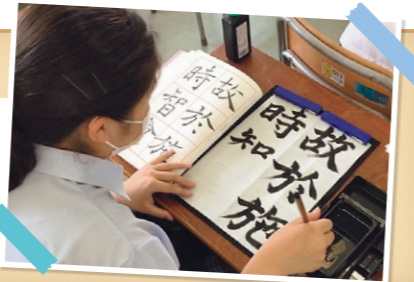 故於施
時知
故於施
時智